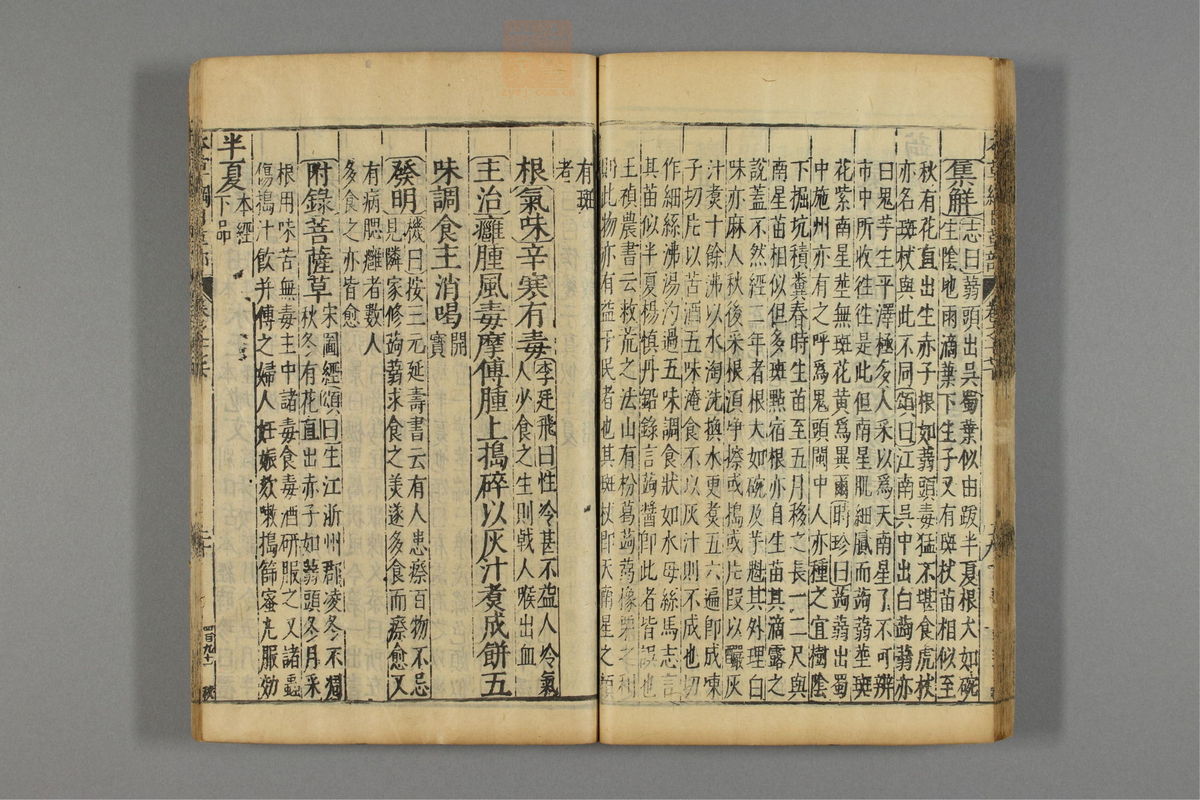 集解志曰蒻頭出吳蜀葉似由跋半夏根大如碗
生陰地雨滴葉下生子又有斑杖苗相似至
秋有花直出生赤子根如蒻頭毒猛不堪食虎杖
亦名斑杖與此不同頌曰江南吳中出白蒟蒻亦
曰鬼芋生平澤極多人采以爲天南星了不可辨
市中所收往往是此但南星肌細膩而蒟苗莖斑
花紫南星莖無斑花黄爲異爾時珍曰蒟蒻出蜀
中施州亦有之呼爲鬼頭閩中人亦種之宜樹陰
下掘坑積糞春時生苗至五月移之長一二尺與
南星苗相似但多斑點宿根亦自生苗其滴露之
說蓋不然經二年者根大如碗及芋魁其外理白
味亦麻人秋後采根須净擦或搗或片段以釅灰
汁煑十餘沸以水淘洗換水更煑五六遍即成凍
子切片以苦酒五味淹食不以灰汁則不成也切
作細絲沸湯汋過五味調食狀如水母絲馬志言
其苗似半夏楊慎丹鉛錄言蒟醬即此者皆誤也
王禎農書云救荒之法山有粉葛蒟蒻橡栗之利
則此物亦有益于民者也其斑杖即天南星之類
有斑
者
根氣味辛寒有毒李廷飛曰性冷甚不益人冷氣
人少食之生則戟人喉出血
主治癰腫風毒摩傅腫上搗碎以灰汁煑成餅五
味調食主消喝開
寳
發明機曰按三元延壽書云有人患瘵百物不忌
見隣家修蒟蒻求食之美遂多食而瘵愈又
有病腮癰者數人
多食之亦皆愈
附錄菩薩草宋圖經頌曰生江浙州郡凌冬不凋
秋冬有花直出赤子如蒻頭冬月采
根用味苦無毒主中諸毒食毒酒研服之又諸蟲
傷搗汁飲并傅之婦人妊娠欬嗽搗篩蜜丸服効
半夏本經
下品